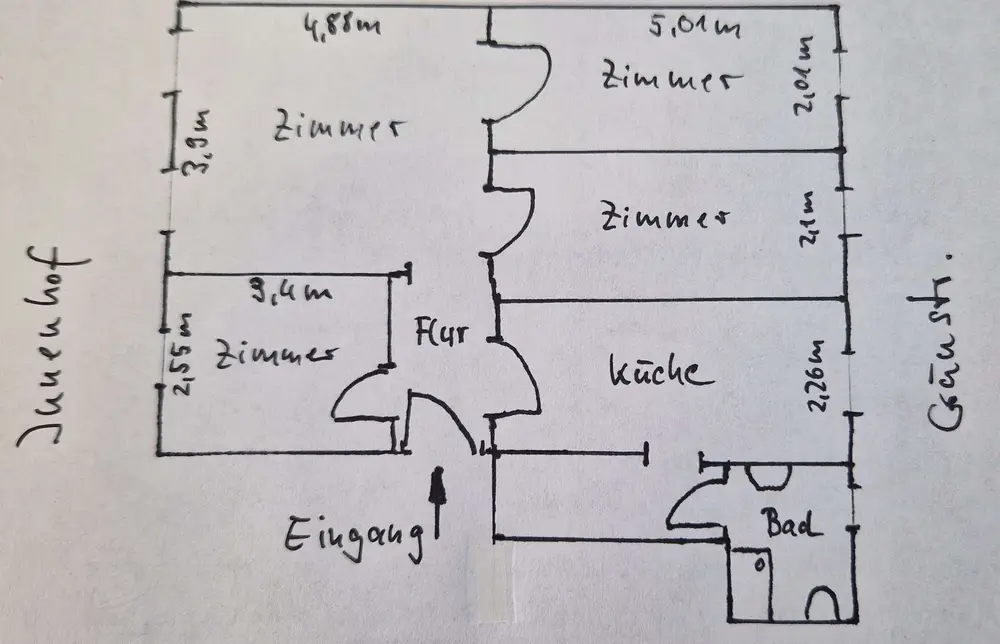 4,88m
5,01m
Zimmer
2,01m
Zimmer
3,9m
Zimmer
2,1m
Innenhof
3,4m
Flur
Zimmer
2,55m
Küche
2,26m
Eingang
Bad